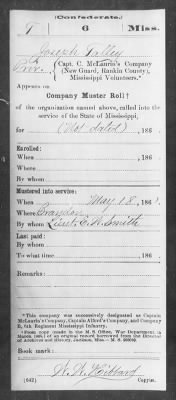 (Confederate.)
T 6 Miss.
Joseph Talley
Prvt., Capt. C. McLaurin's Company
(New Guard, Rankin County),
Mississippi Volunteers.*
Appears on
Company Muster Roll†
of the organization named above, called into the
service of the State of Mississippi,
for (Not dated), 186 .
Enrolled:
When , 186 .
Where
By whom
Mustered into service:
When May 18, 186 .
Where Brandon
By whom Lieut. E. R. Smith
Last paid:
By whom
To what time , 186 .
Remarks:
*This company was successively designated as Captain
McLaurin's Company, Captain Alford's Company, and Company
, 6th Regiment Mississippi Infantry.
†From copy made in the M. S. Office, War Department in
of an original record borrowed from the Director
of Archives and History, Jackson, Miss.
Book mark:
(642) Copyist.